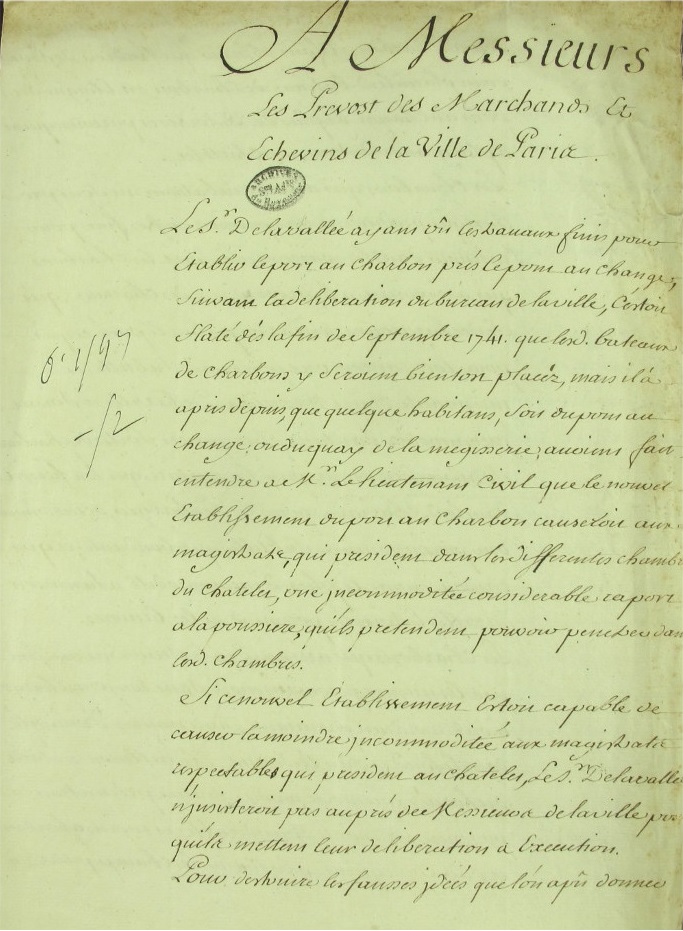 A Messieurs
Les Prevost des Marchands Et
Echevins de la Ville de Paris.
ARCHIVES
Le S.r Delavalleé ayant vû les travaux finis pour
Etablir le port au Charbon prés le pont au Change,
Suivant la deliberation du bureau de la ville, s'estoit
flaté dés la fin de Septembre 1741. que lesd. bateaux
de Charbons y Seroient bientost placéz, mais il à
apris depuis, que quelque habitans, Soit du pont au
change, ou du quay de la megisserie, avoient fait
entendre a M.r Le lieutenant Civil que le nouvel
Etablissement du port au Charbon causeroit aux
magistrats, qui president dans les differentes chamb
du chatelet, une jncommoditée considerable raport
a la poussiere, qu'ils pretendent pouvoir penetrer dan
lesd. chambres.
Si ce nouvel Etablissement Estoit capable de
causer la moindre jncommoditée aux magistrats
respectables qui president au chatelet, Le S.r Delavalle
n'jnsisteroit pas auprés de Messieurs de la ville pour
qu'ils mettent leur deliberation à Execution.
Pour destruire les fausses jdeés que l'on a pû donner